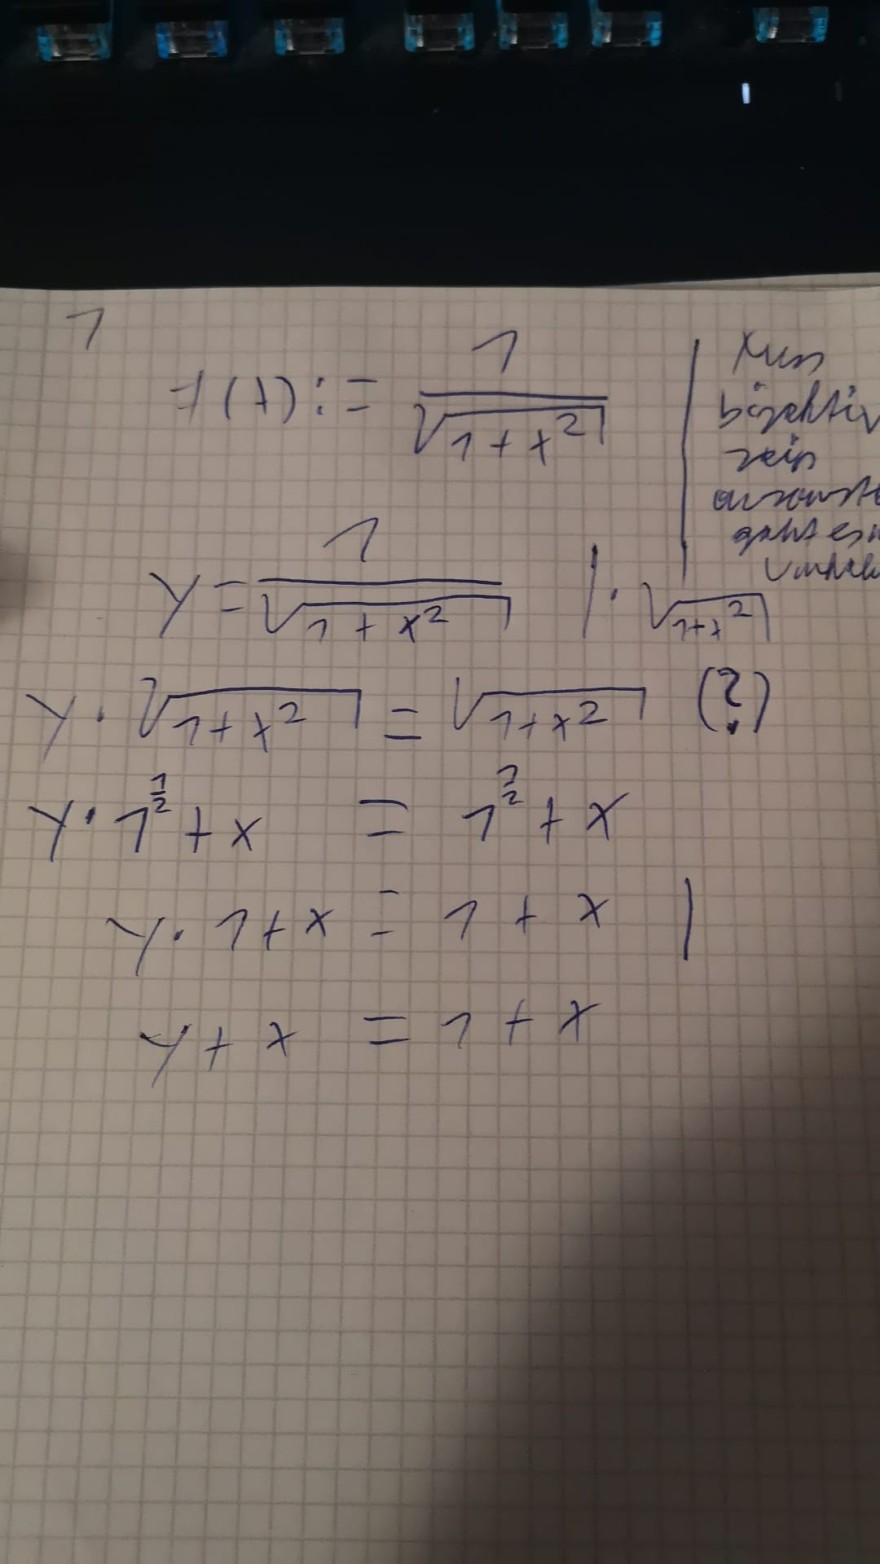 1
f(x) := 1/√(1+x²)
Muss
bijektiv
sein
ansonste
geht es n
y = 1/√(1+x²) | · √(1+x²)
y · √(1+x²) = √(1+x²) (?)
y · 1^(1/2) + x = 1^(1/2) + x
y · 1 + x = 1 + x |
y + x = 1 + x